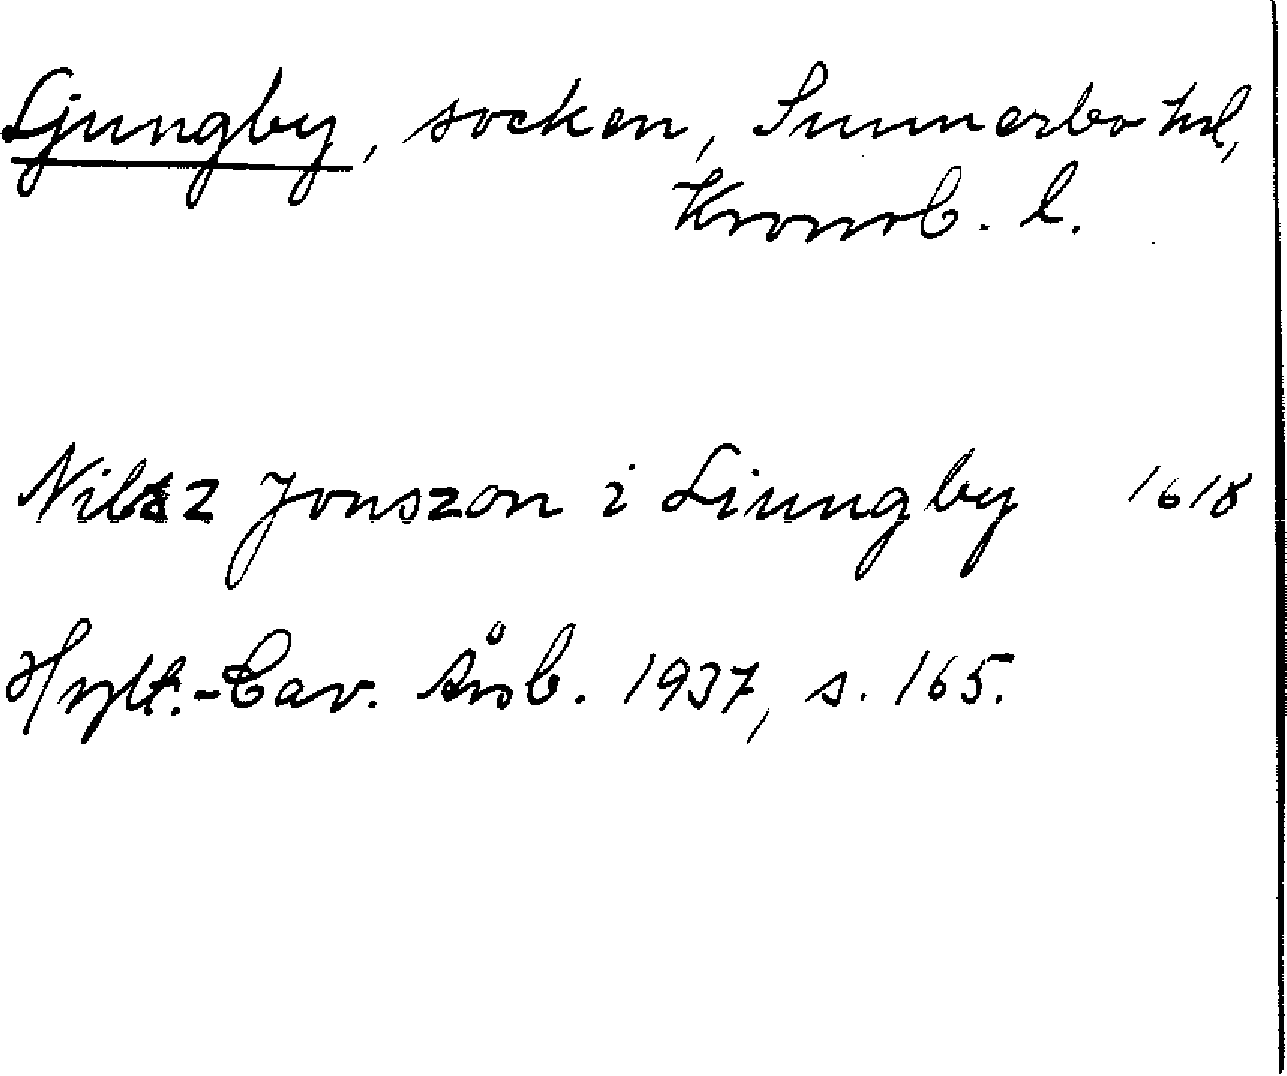 Ljungby, socken, Sunnerbo hd,
Kronob. l.
Nilsz Jonszon i Liungby 1618
Hylt.-Cav. Årsb. 1937, s. 165.